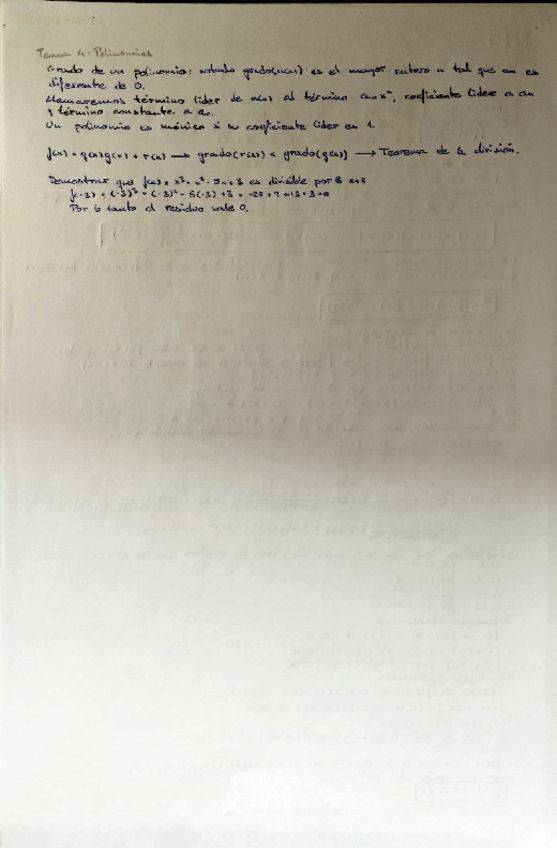 Tema 4: Polinomios
Grado de un polinomio: notado grado(a(x)) es el mayor entero n tal que an es
diferente de 0.
Llamaremos término líder de a(x) al término an xⁿ, coeficiente líder a an
y término constante a a₀.
Un polinomio es mónico si su coeficiente líder es 1.
f(x) = q(x)g(x) + r(x) → grado(r(x)) < grado(g(x)) → Teorema de la división.
Demostrar que f(x) = x³ + x² - 5x + 3 es divisible por x+3
f(-3) = (-3)³ + (-3)² - 5(-3) + 3 = -27 + 9 + 15 + 3 = 0
Por lo tanto el residuo vale 0.